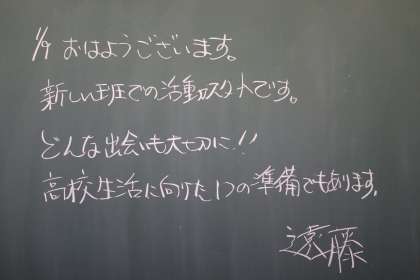 1/9 おはようございます。
新しい班での活動スタートです。
どんな出会いも大切に!!
高校生活に向けた1つの準備でもあります。
遠藤